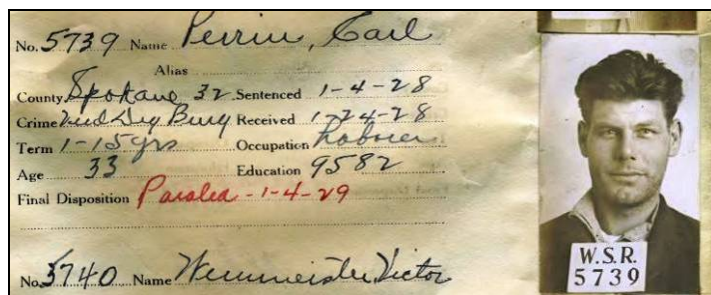 No. 5739 Name Perrin, Carl
Alias
County Spokane 32 Sentenced 1-4-28
Crime 2nd Deg Burg Received 1-24-28
Term 1-15 yrs Occupation Laborer
Age 33 Education 9582
Final Disposition Paroled - 1-4-29
No. 5740 Name Wemmeister, Victor
W.S.R.
5739